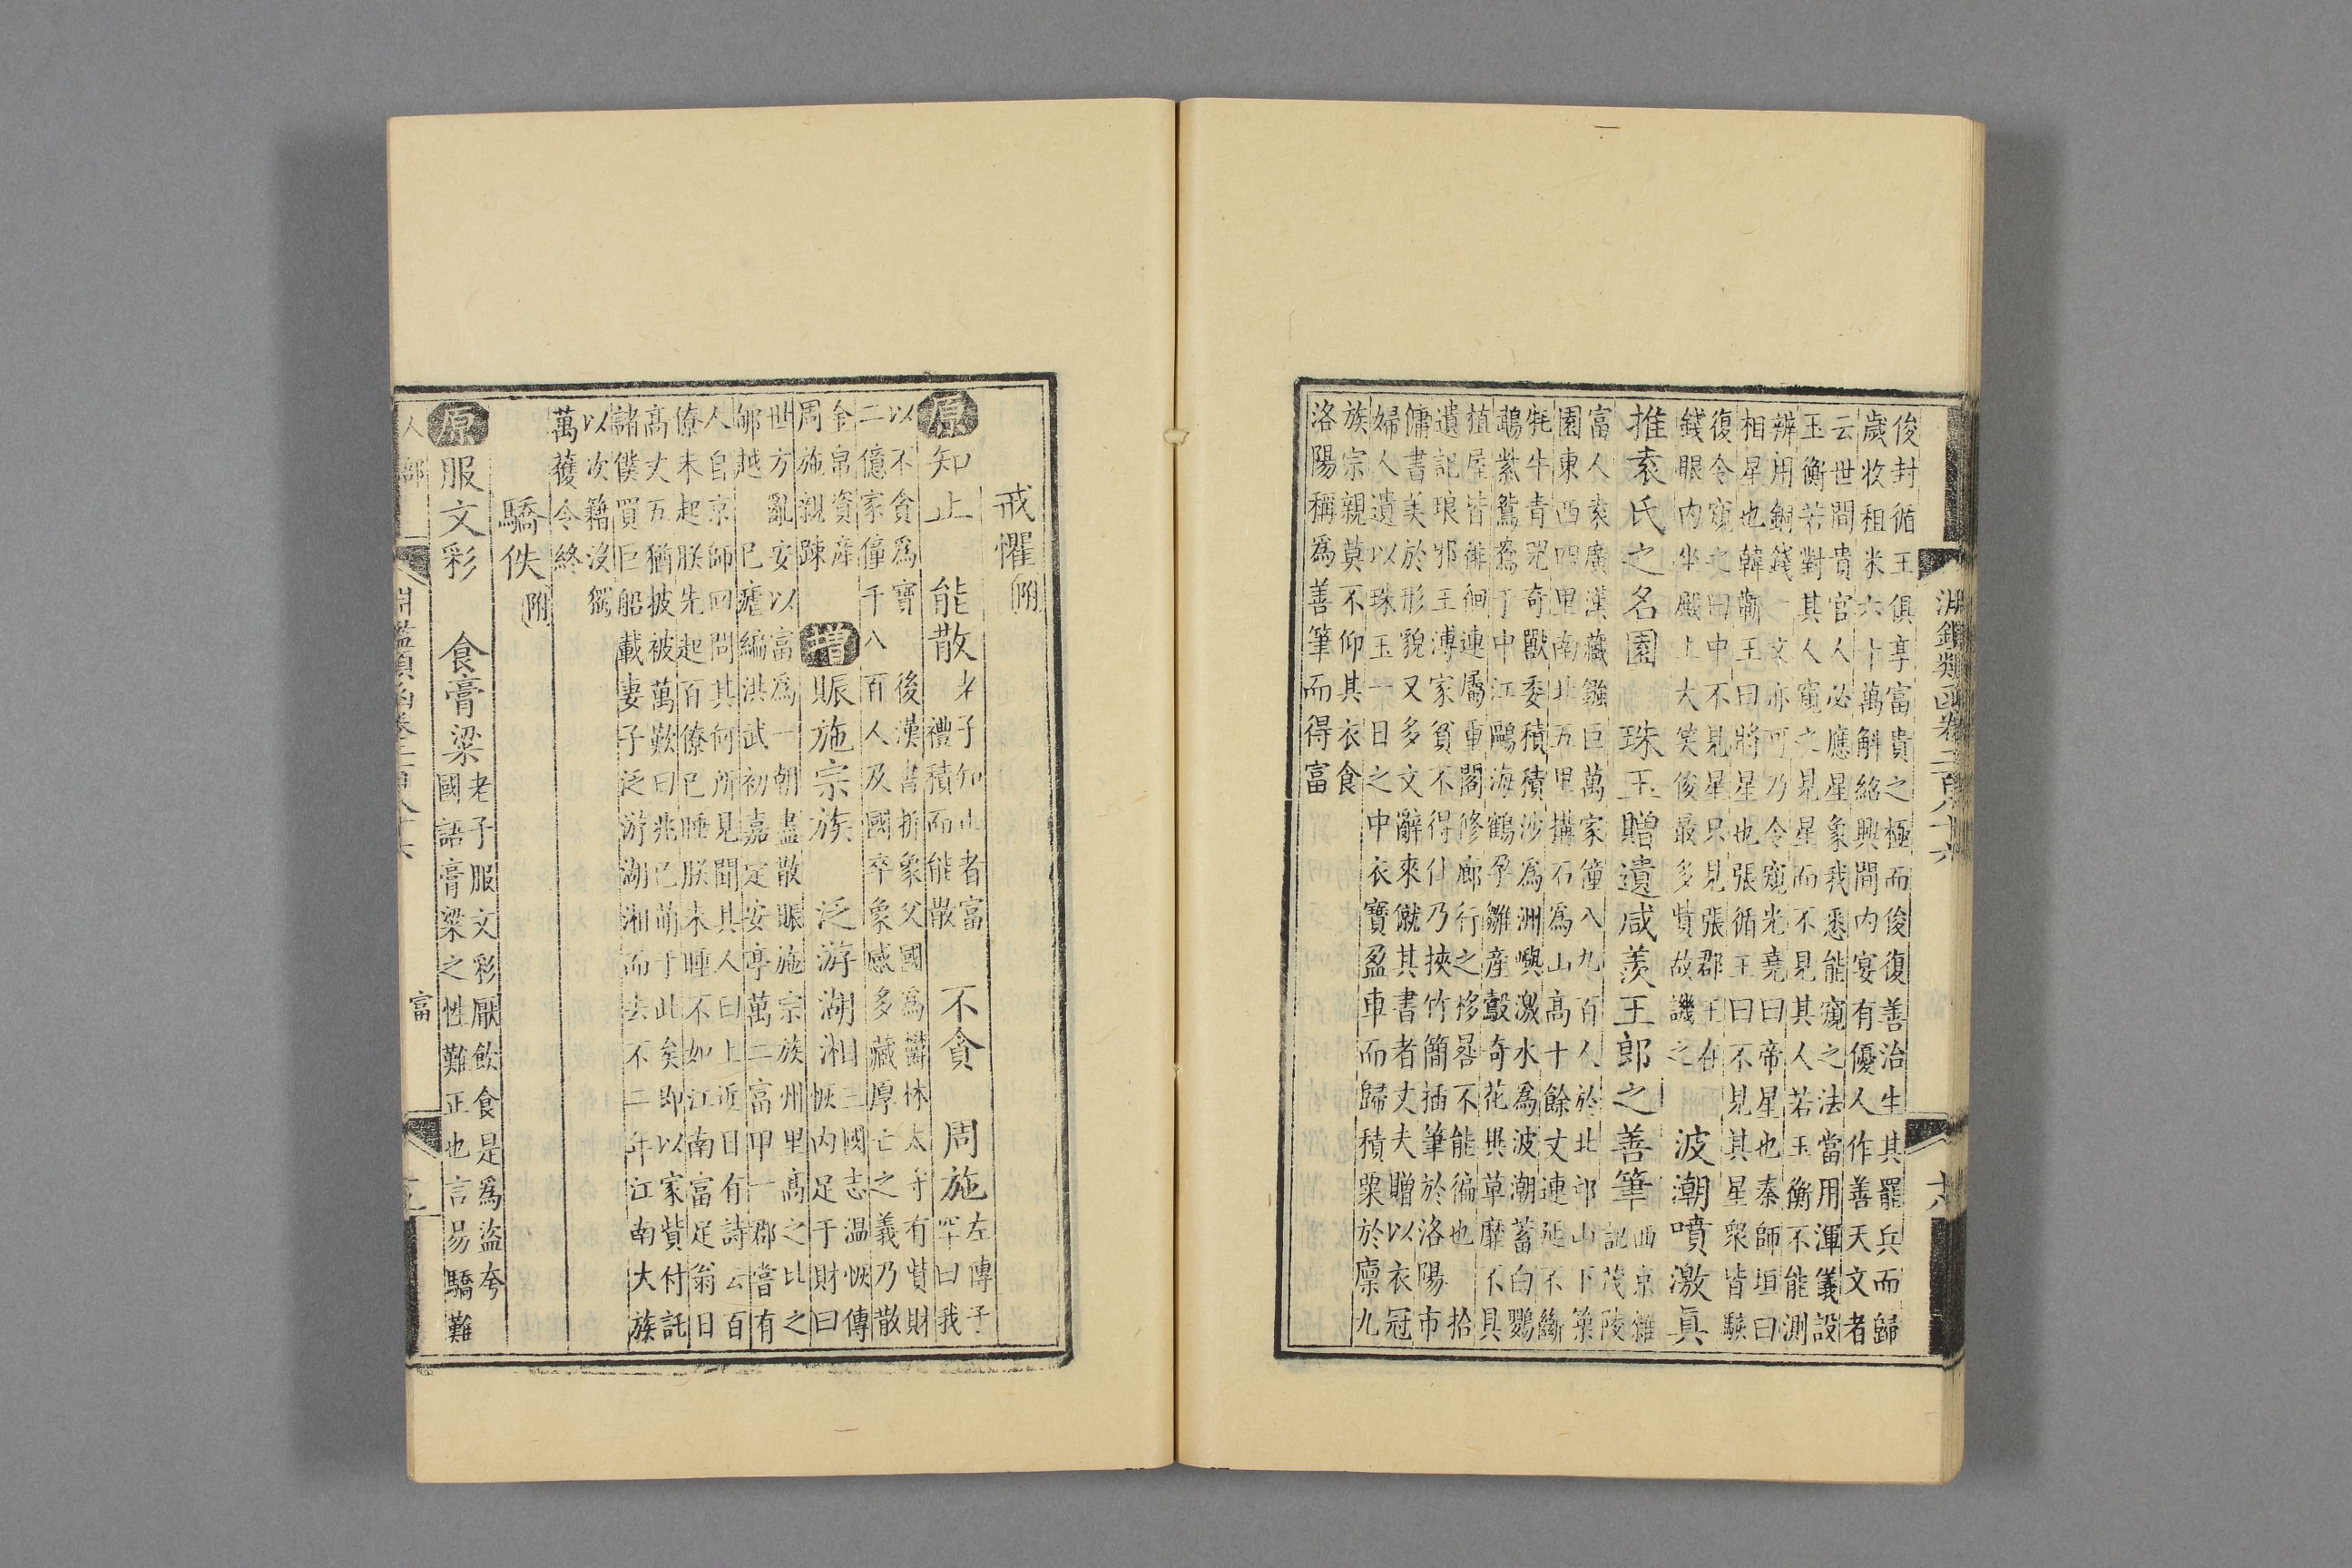 淵鑑類函卷二百八十六
十八
俊封循王俱享富貴之極而俊復善治生其罷兵而歸
歲收租米六十萬斛紹興間內宴有優人作善天文者
云世間貴官人必應星象我悉能窺之法當用渾儀設
玉衡若對其人窺之見星而不見其人若玉衡不能測
辨用銅錢一文亦可乃令窺光堯曰帝星也秦師垣曰
相星也韓蘄王曰將星也張循王曰不見其星衆皆駭
復令窺之曰中不見星只見張郡王在
錢眼內坐殿上大笑俊最多貲故譏之
波潮噴激真
推袁氏之名園 珠玉贈遺咸羨王郎之善筆
西京雜
記茂陵
富人袁廣漢藏鏹巨萬家僮八九百人於北邙山下築
園東西四里南北五里搆石為山高十餘丈連延不斷
牦牛青兕奇獸委積積沙為洲嶼激水為波潮蓄白鸚
鵡紫鴛鴦于中江鷗海鶴孕雛產鷇奇花異草靡不具
植屋皆徘徊連屬重閣修廊行之移晷不能徧也 拾
遺記琅邪王溥家貧不得仕乃挾竹簡插筆於洛陽市
傭書美於形貌又多文辭來僦其書者丈夫贈以衣冠
婦人遺以珠玉一日之中衣寶盈車而歸積粟於廩九
族宗親莫不仰其衣食
洛陽稱為善筆而得富
戒懼附
原知止 能散
老子知止者富
禮積而能散
不貪 周施
左傳子
罕曰我
以不貪為寶 後漢書折象父國為鬱林太守有貲財
二億家僮千八百人及國卒象感多藏厚亡之義乃散
金帛資產
周施親疎
增賑施宗族 泛游湖湘
三國志溫恢傳
恢內足于財曰
世方亂安以富為一朝盡散賑施宗族州里高之比之
郇越 已瘧編洪武初嘉定安亭萬二富甲一郡嘗有
人自京師回問其何所見聞其人曰上近日有詩云百
僚未起朕先起百僚已睡朕未睡不如江南富足翁日
高丈五猶披被萬歎曰兆已萌于此矣即以家貲付託
諸僕買巨船載妻子泛游湖湘而去不二年江南大族
以次籍沒獨
萬獲令終
驕佚附
原服文彩 食膏粱
老子服文彩厭飲食是為盜夸
國語膏粱之性難正也言易驕難
人部
淵鑑類函卷二百八十六
富